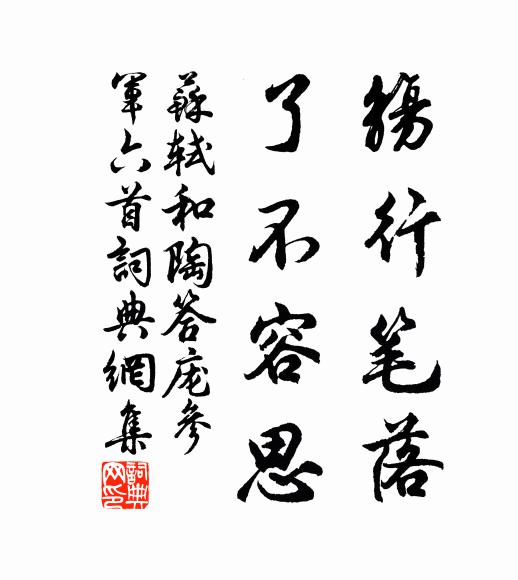 觴行笔落
了不容思
蘇軾和陶答庞參
軍六首詞典網集
詞典
网印